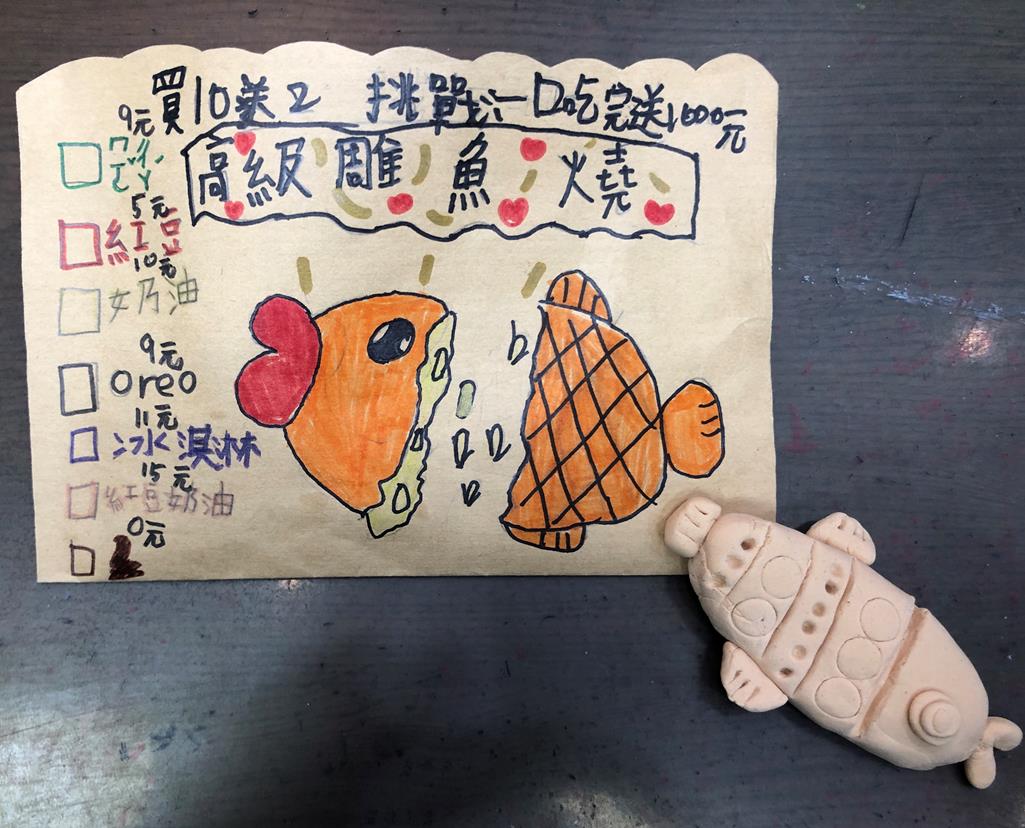 買10送2 挑戰一口吃完送1000元
高級雕魚燒
9元
5元
紅豆
10元
奶油
9元
oreo
11元
冰淇淋
15元
紅豆奶油
0元